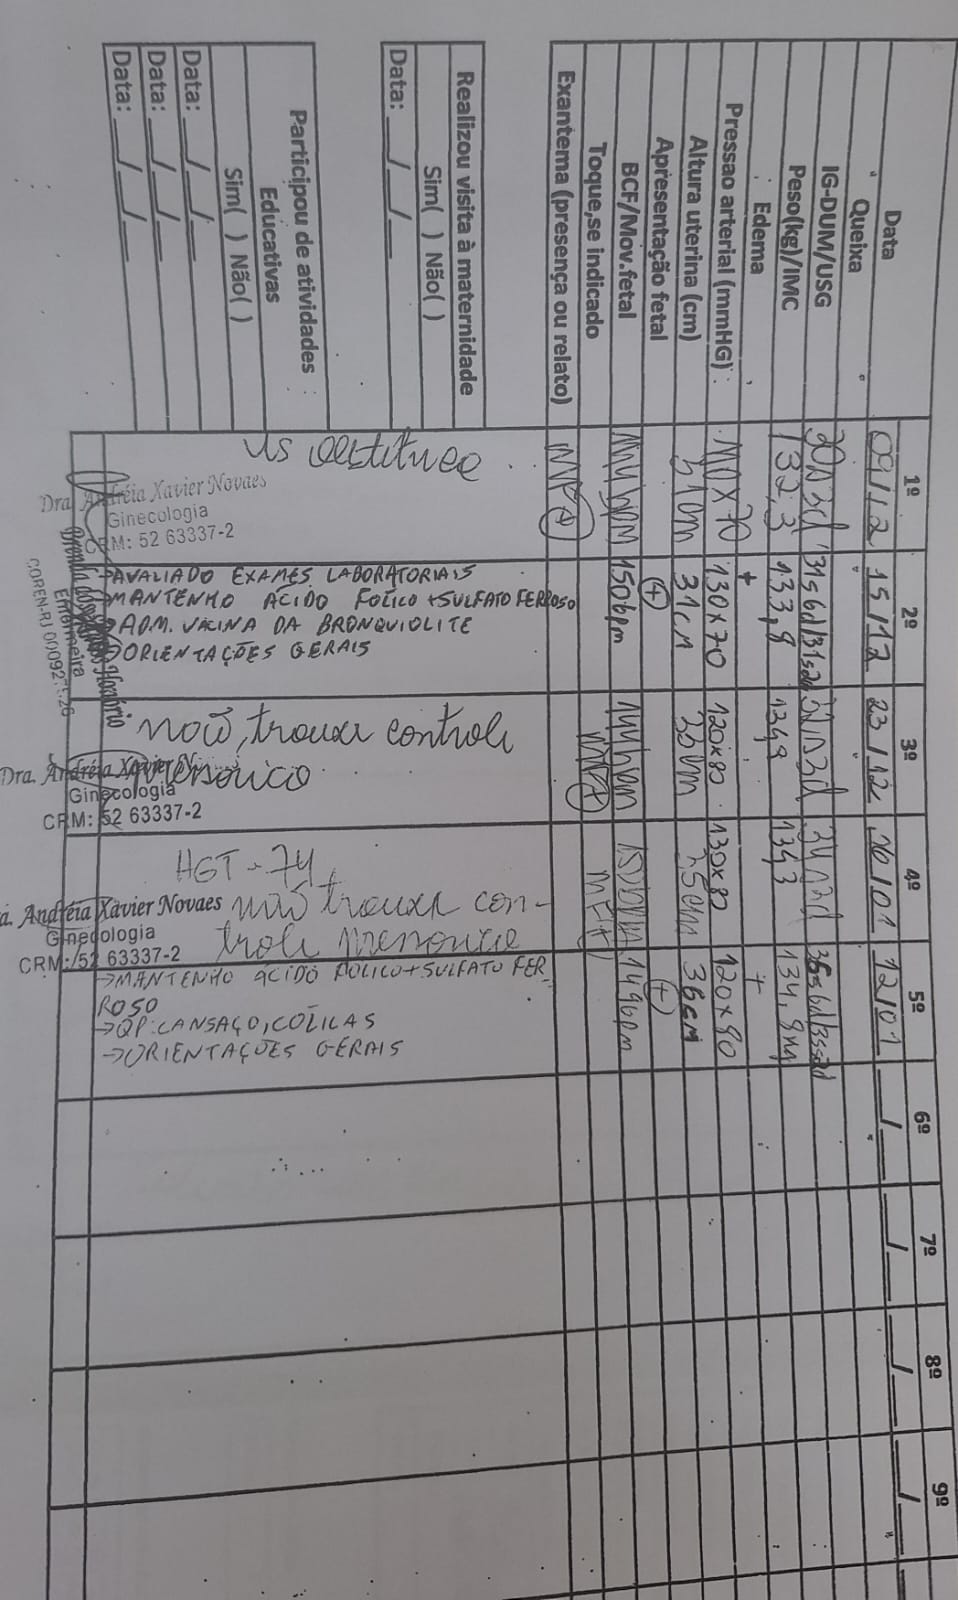 1º 2º 3º 4º 5º 6º 7º 8º 9º
Data 09/12 15/12 23/12 10/01 12/01 __/__ __/__ __/__ __/__
Queixa
IG-DUM/USG 30s3d 31s6d/31s2d 32s3d 34s2d
Peso(kg)/IMC 132,3 133,8 134,3 134,9kg
Edema + +
Pressao arterial (mmHG) 110x70 130x70 120x80 130x80 120x80
Altura uterina (cm) 31cm 31cm 35cm 36cm
Apresentação fetal (+) (+)
BCF/Mov.fetal 150bpm 149bpm
Toque,se indicado MF+ MF+
Exantema (presença ou relato) MF+
Realizou visita à maternidade
Sim( ) Não( )
Data: __/__/__
Participou de atividades
Educativas
Sim( ) Não( )
Data: __/__/__
Data: __/__/__
Data: __/__/__
Dra. Andréia Xavier Novaes
Ginecologia
CRM: 52 63337-2
→AVALIADO EXAMES LABORATORIAIS
→MANTENHO ÁCIDO FÓLICO +SULFATO FERROSO
→ADM. VACINA DA BRONQUIOLITE
→ORIENTAÇÕES GERAIS
Enfermeira
COREN-RJ
não, trouxe controle
Dra. Andréia Xavier
Ginecologia
CRM: 52 63337-2
HGT - 74
não trouxe con-
trole
a. Andréia Xavier Novaes
Ginecologia
CRM: 52 63337-2
→MANTENHO ÁCIDO FÓLICO+SULFATO FER
ROSO
→QP: CANSAÇO, CÓLICAS
→ORIENTAÇÕES GERAIS